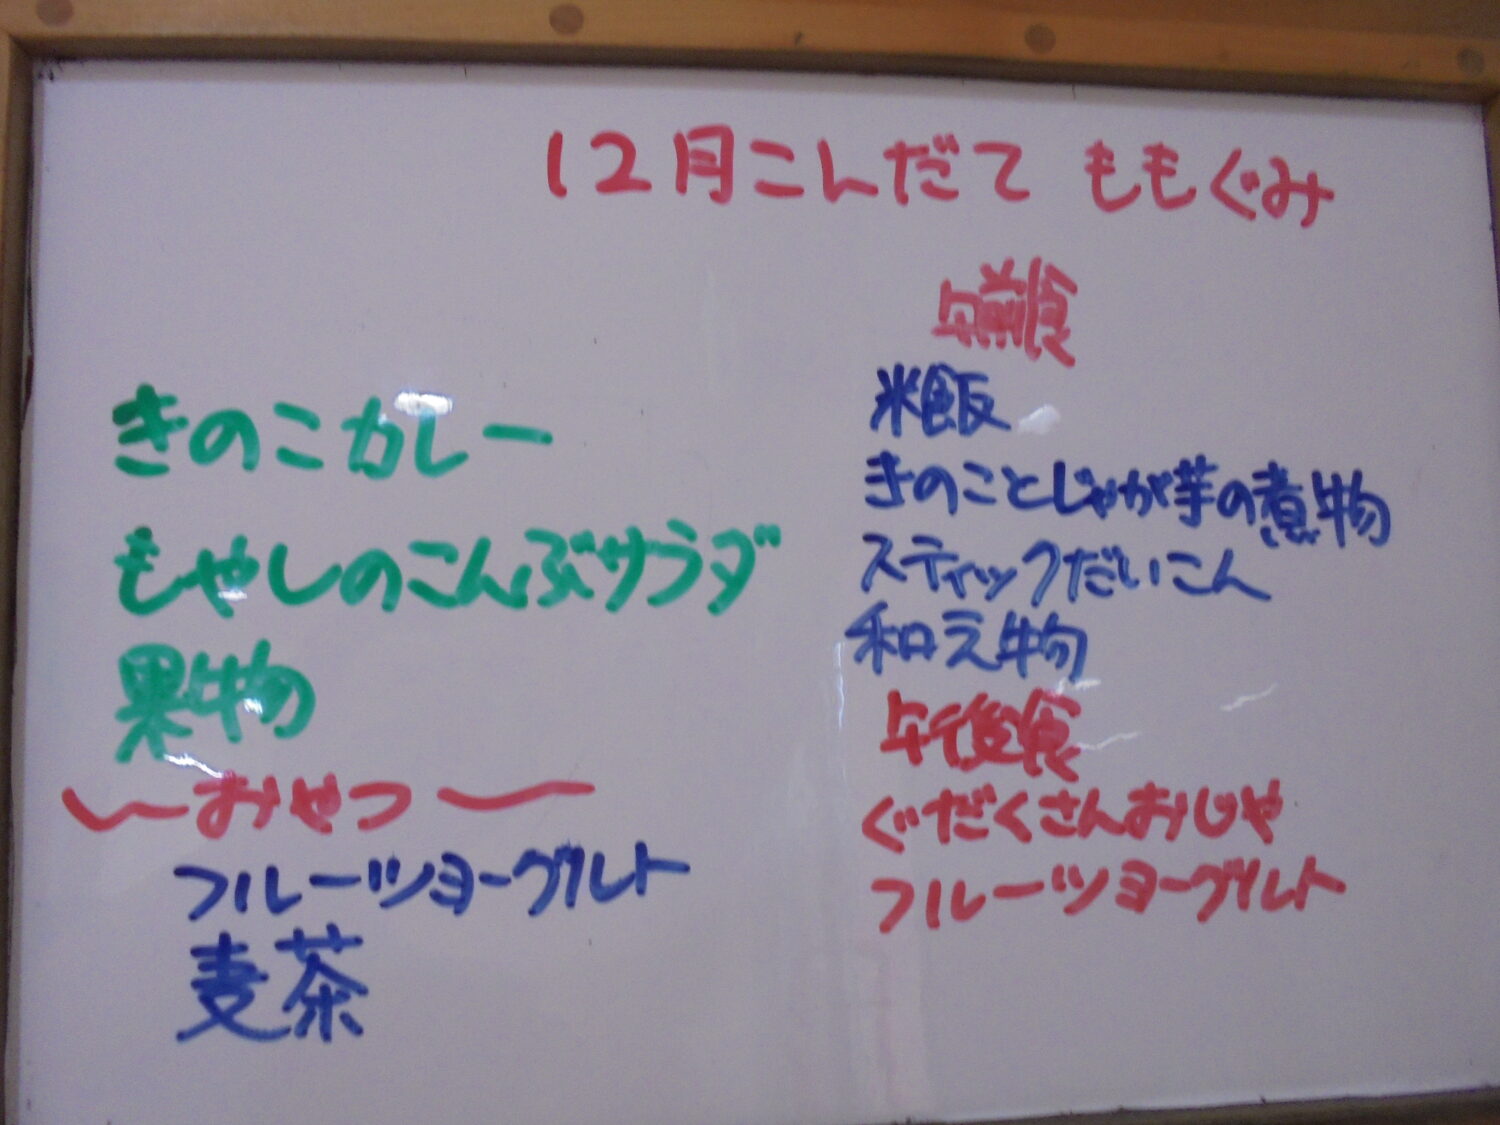 12月こんだて ももぐみ
きのこカレー
もやしのこんぶサラダ
果物
おやつ
フルーツヨーグルト
麦茶
午前食
米飯
きのことじゃが芋の煮物
スティックだいこん
和え物
午後食
ぐだくさんおじや
フルーツヨーグルト